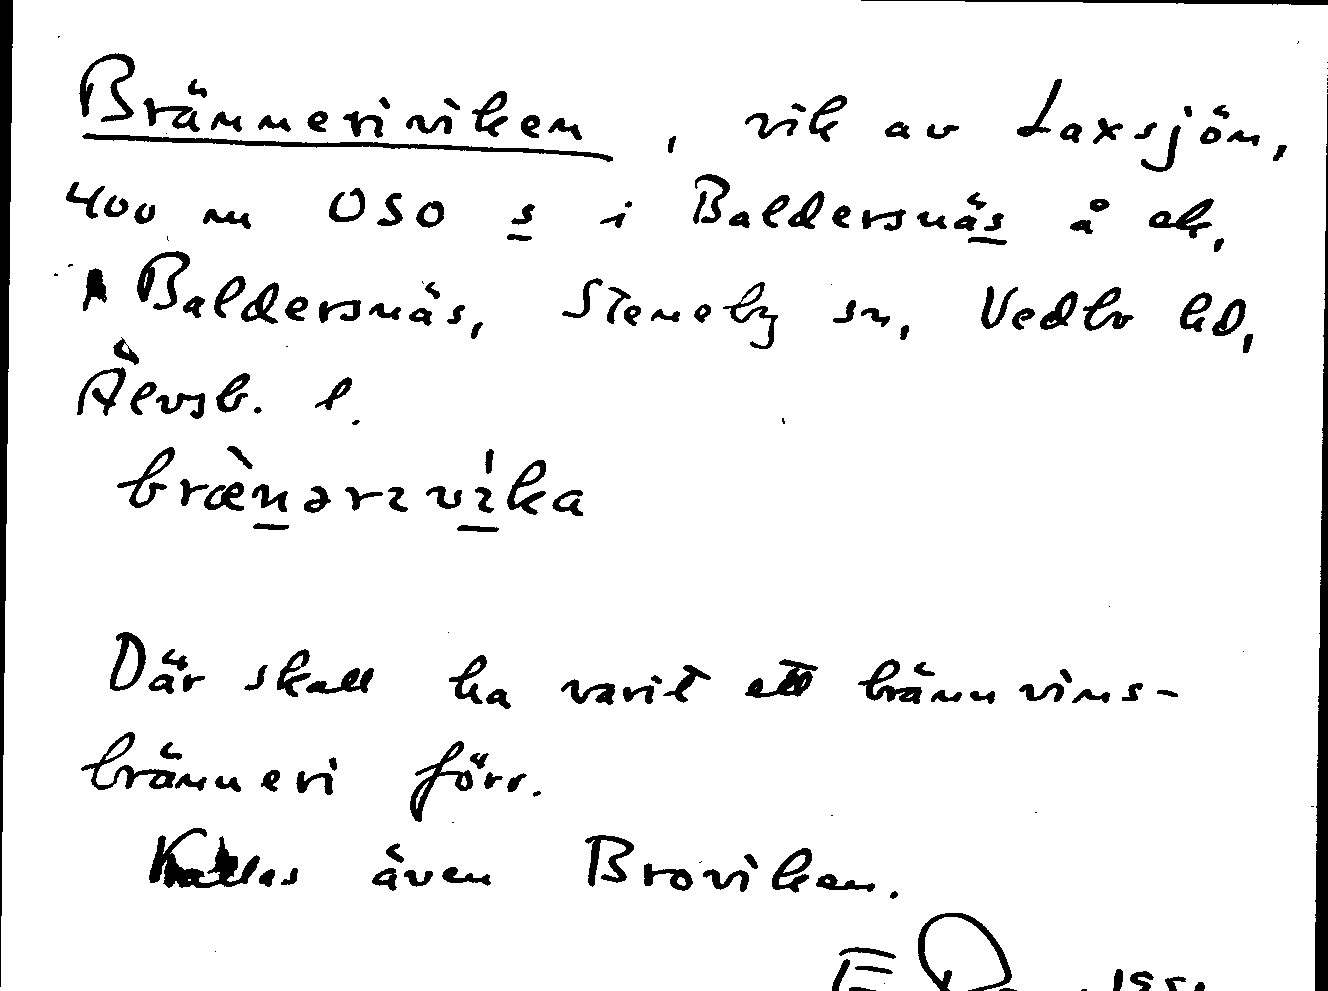 Bränneriviken, vik av Laxsjön,
400 m OSO s i Baldersnäs å ek,
Baldersnäs, Steneby sn, Vedbo hd,
Älvsb. l.
bræ̀nərɪvɪ́ka
Där skall ha varit ett brännvins-
bränneri förr.
Kallas även Broviken.